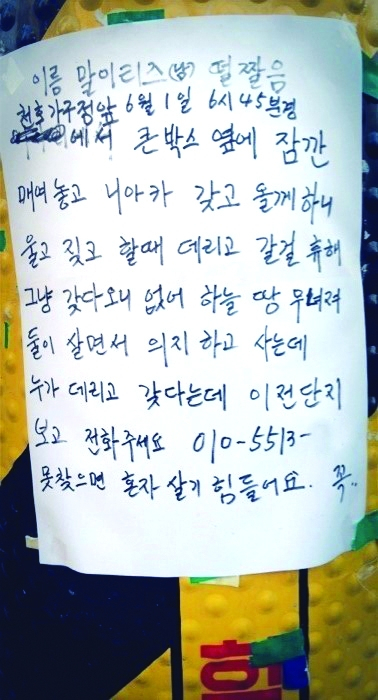 이름 말이티즈(남) 털짤음
천호가구정앞 6월 1일 6시 45분경
에서 큰박스 옆에 잠깐
매여놓고 니아카 갖고 올께하니
울고 짖고 할때 데리고 갈걸 휴해
그냥 갖다오니 없어 하늘 땅 무너져
둘이 살면서 의지 하고 사는데
누가 데리고 갖다는데 이전단지
보고 전화주세요 010-5513-
못찾으면 혼자 살기 힘들어요. 꼭..